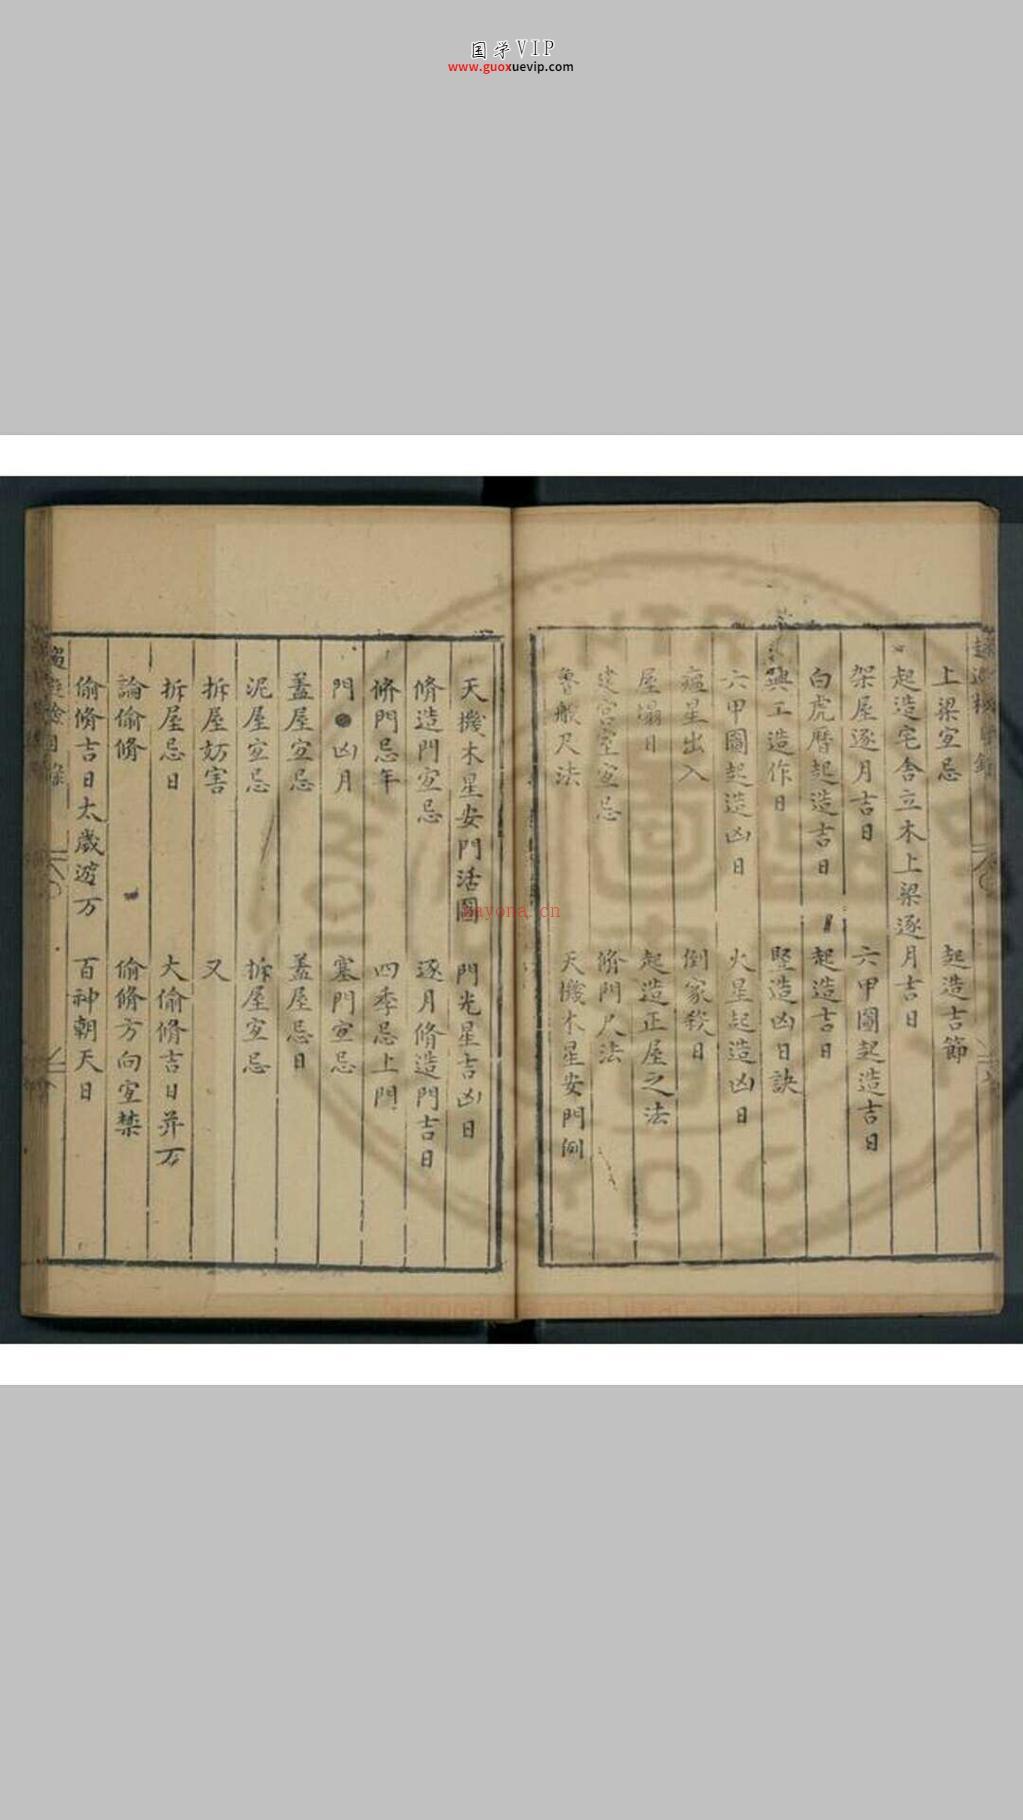 国学VIP
www.guoxuevip.com
上梁宜忌 起造吉節
起造宅舍立木上梁逐月吉日
架屋逐月吉日 六甲圖起造吉日
白虎曆起造吉日 起造吉日
興工造作日 竪造凶日訣
六甲圖起造凶日 火星起造凶日
瘟星出入 倒家殺日
屋塌日 起造正屋之法
建宫室宜忌 脩門尺法
魯般尺法 天機木星安門例
天機木星安門活圖 門光星吉凶日
脩造門宜忌 逐月脩造門吉日
脩門忌年 四季忌上門
門●凶月 塞門宜忌
蓋屋宜忌 蓋屋忌日
泥屋宜忌 拆屋宜忌
拆屋妨害 又
拆屋忌日 大偷脩吉日并万
論偷脩 偷脩方向宜禁
偷脩吉日太歲遊万 百神朝天日
nayona.cn